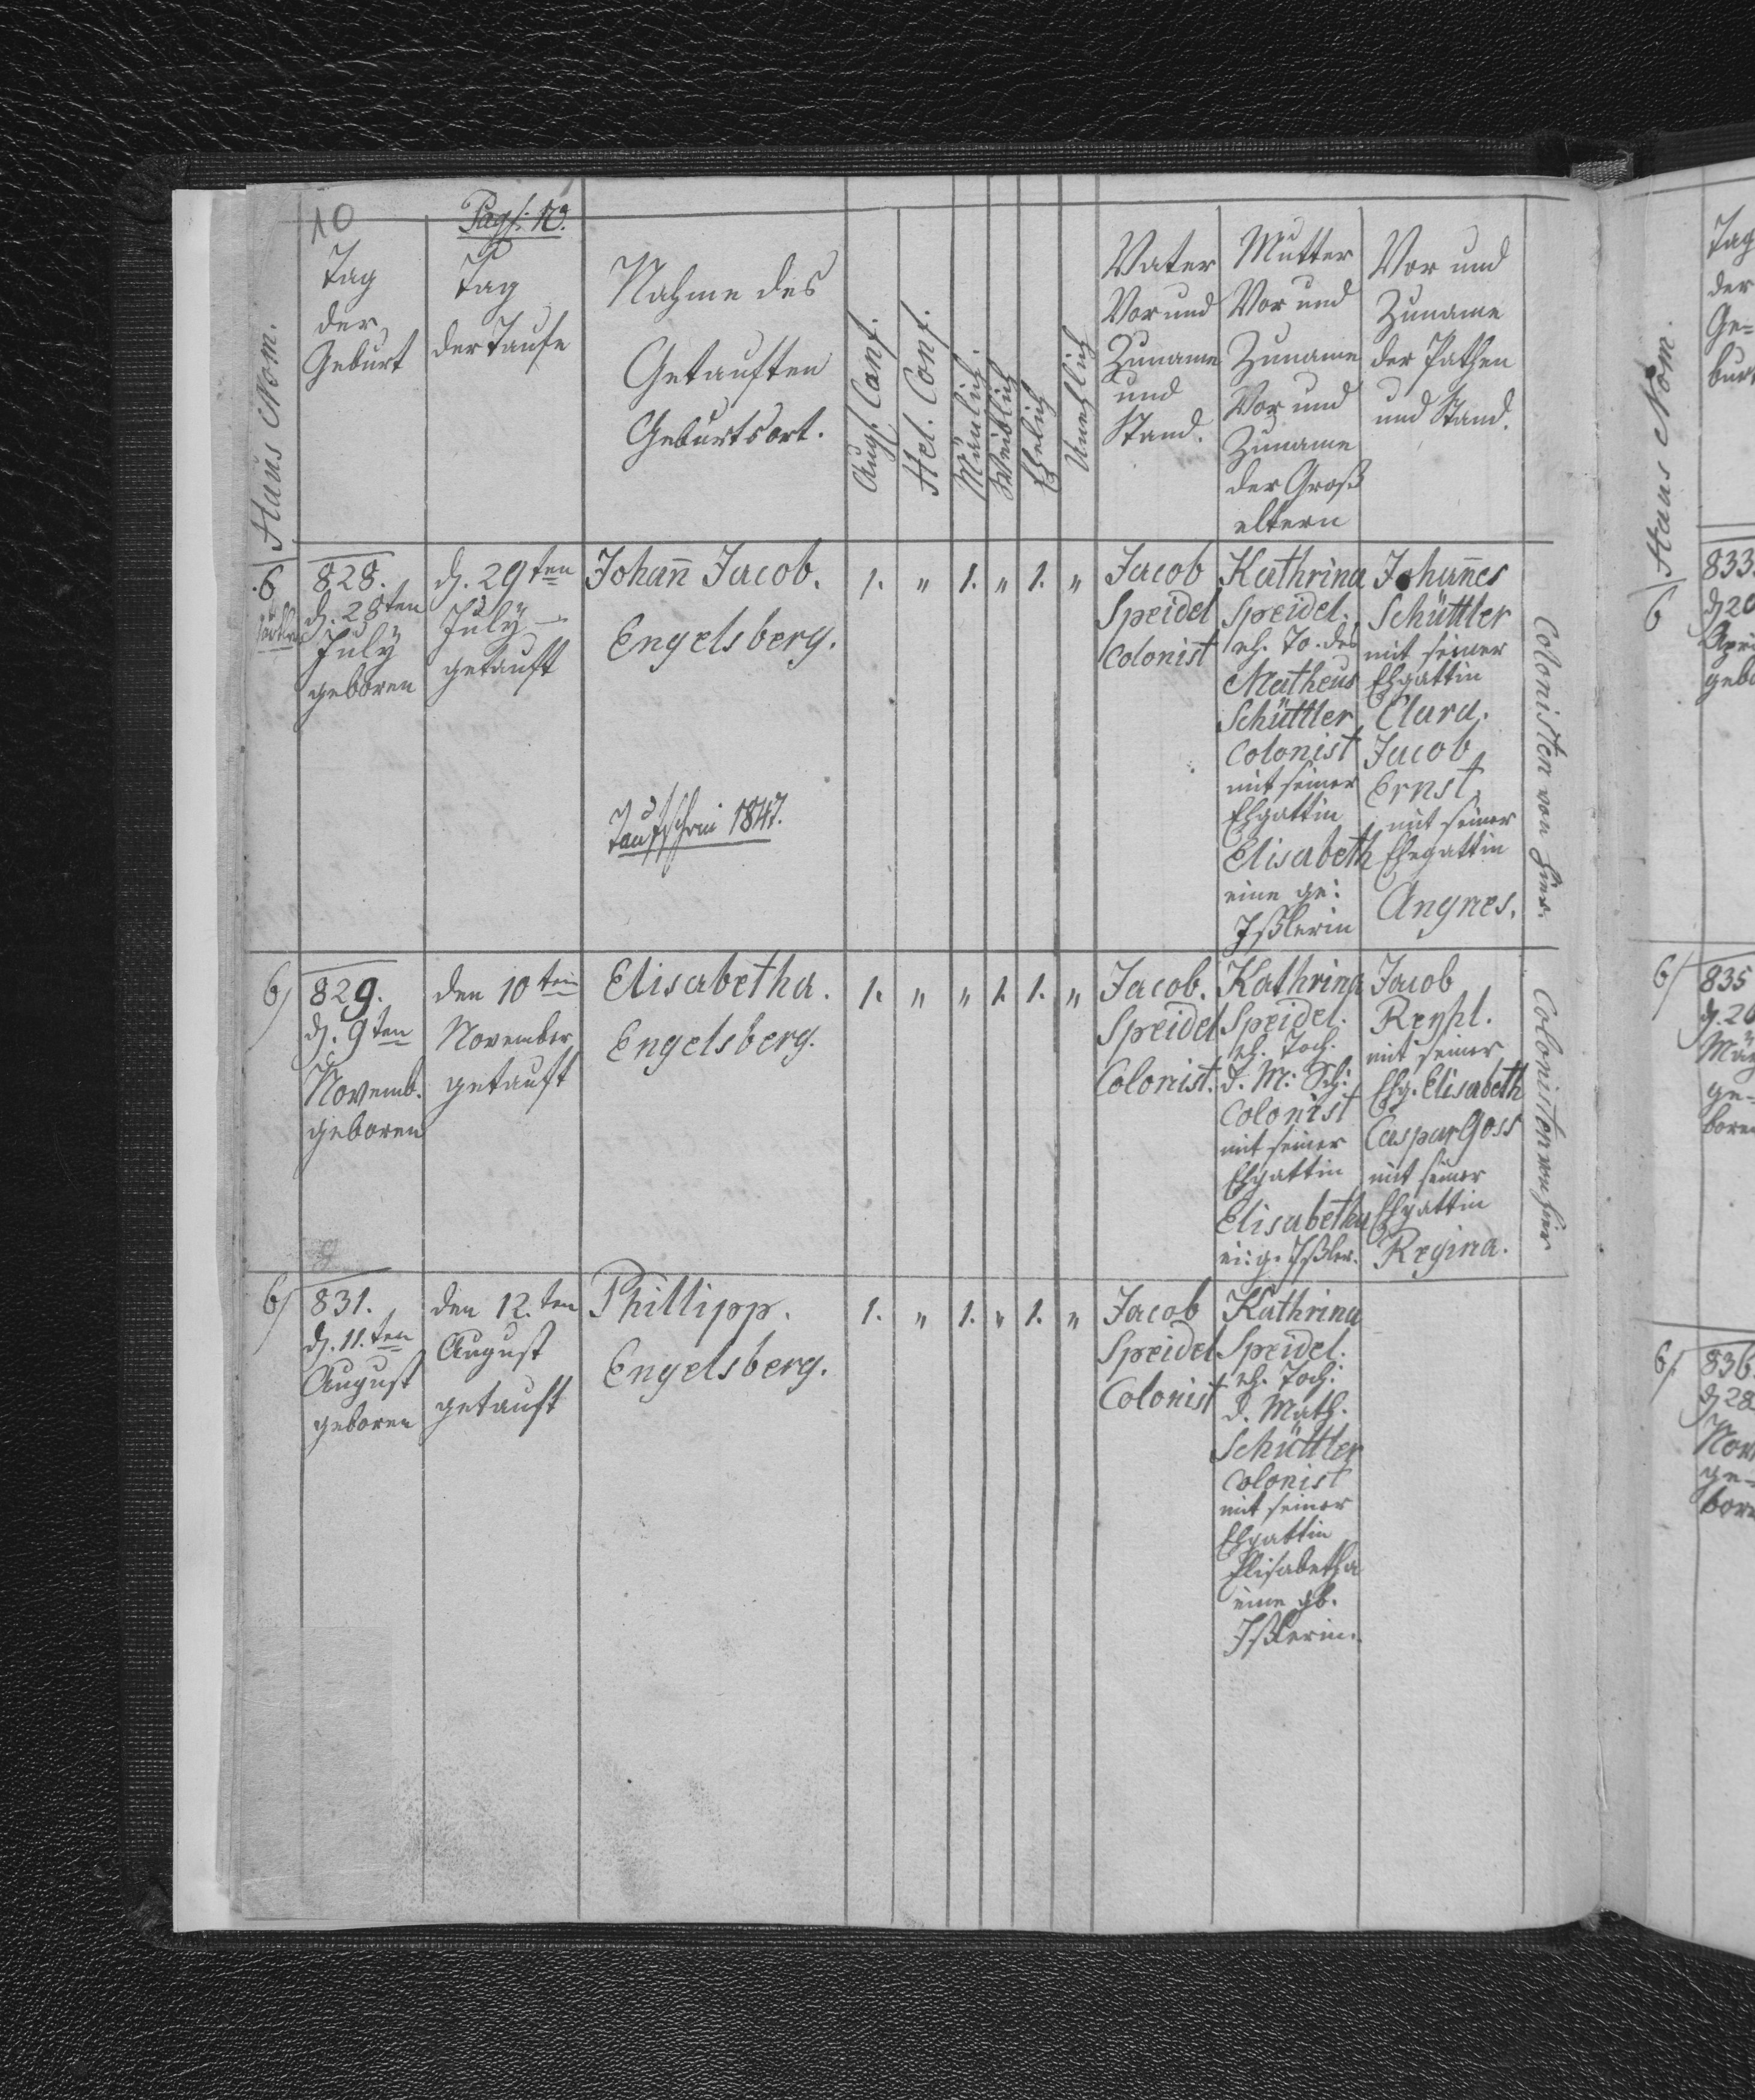 10
Pag: 10.
Haus Nom.
Tag
der
Geburt
Tag
der Taufe
Nahme des
Getauften
Geburtsort.
Augs. Conf.
Hel. Conf.
Mänlich
Weiblich
Ehelich
Unehlich
Vater
Vor und
Zuname
und
Stand.
Mutter
Vor und
Zuname
Vor und
Zuname
der Groß
eltern
Vor und
Zuname
der Pathen
und Stand.
6
828.
d. 28ten
July
geboren
d. 29ten
July
getauft
Johan̄ Jacob.
Engelsberg.
Taufschein 1847.
1. " 1. " 1. "
Jacob
Speidel
Colonist
Kathrina
Speidel.
eh. To. des
Matheus
Schüttler
Colonist
mit seiner
Ehgattin
Elisabeth
eine ge:
Ißlerin
Johan̄es
Schüttler
mit seiner
Ehgattin
Clara.
Jacob
Ernst
mit seiner
Ehegattin
Angnes.
Colonisten von hier.
6/
829.
d. 9ten
Novemb.
geboren
den 10ten
November
getauft
Elisabetha.
Engelsberg.
1. " " 1. 1. "
Jacob.
Speidel
Colonist.
Kathrina
Speidel.
eh. Toch.
d. M: Sch:
Colonist
mit seiner
Ehgattin
Elisabetha
ei: g. Ißler.
Jacob
mit seiner
Ehg. Elisabeth
Caspar Goss
mit seiner
Ehgattin
Regina.
Colonisten von hier
6/
831.
d. 11.ten
August
geboren
den 12.ten
August
getauft
Phillipp.
Engelsberg.
1. " 1. " 1. "
Jacob
Speidel
Colonist
Kathrina
Speidel.
eh. Toch:
d. Math.
Schüttler
Colonist
mit seiner
Ehgattin
Elisabetha
eine gb.
Ißlerin.
Haus Nom.
Tag
der
Ge=
burt
6
833.
d 20
Apri
gebo
6/
835
d. 20
Mär
ge=
boren
6/
836.
d 28
Nov
ge=
bore